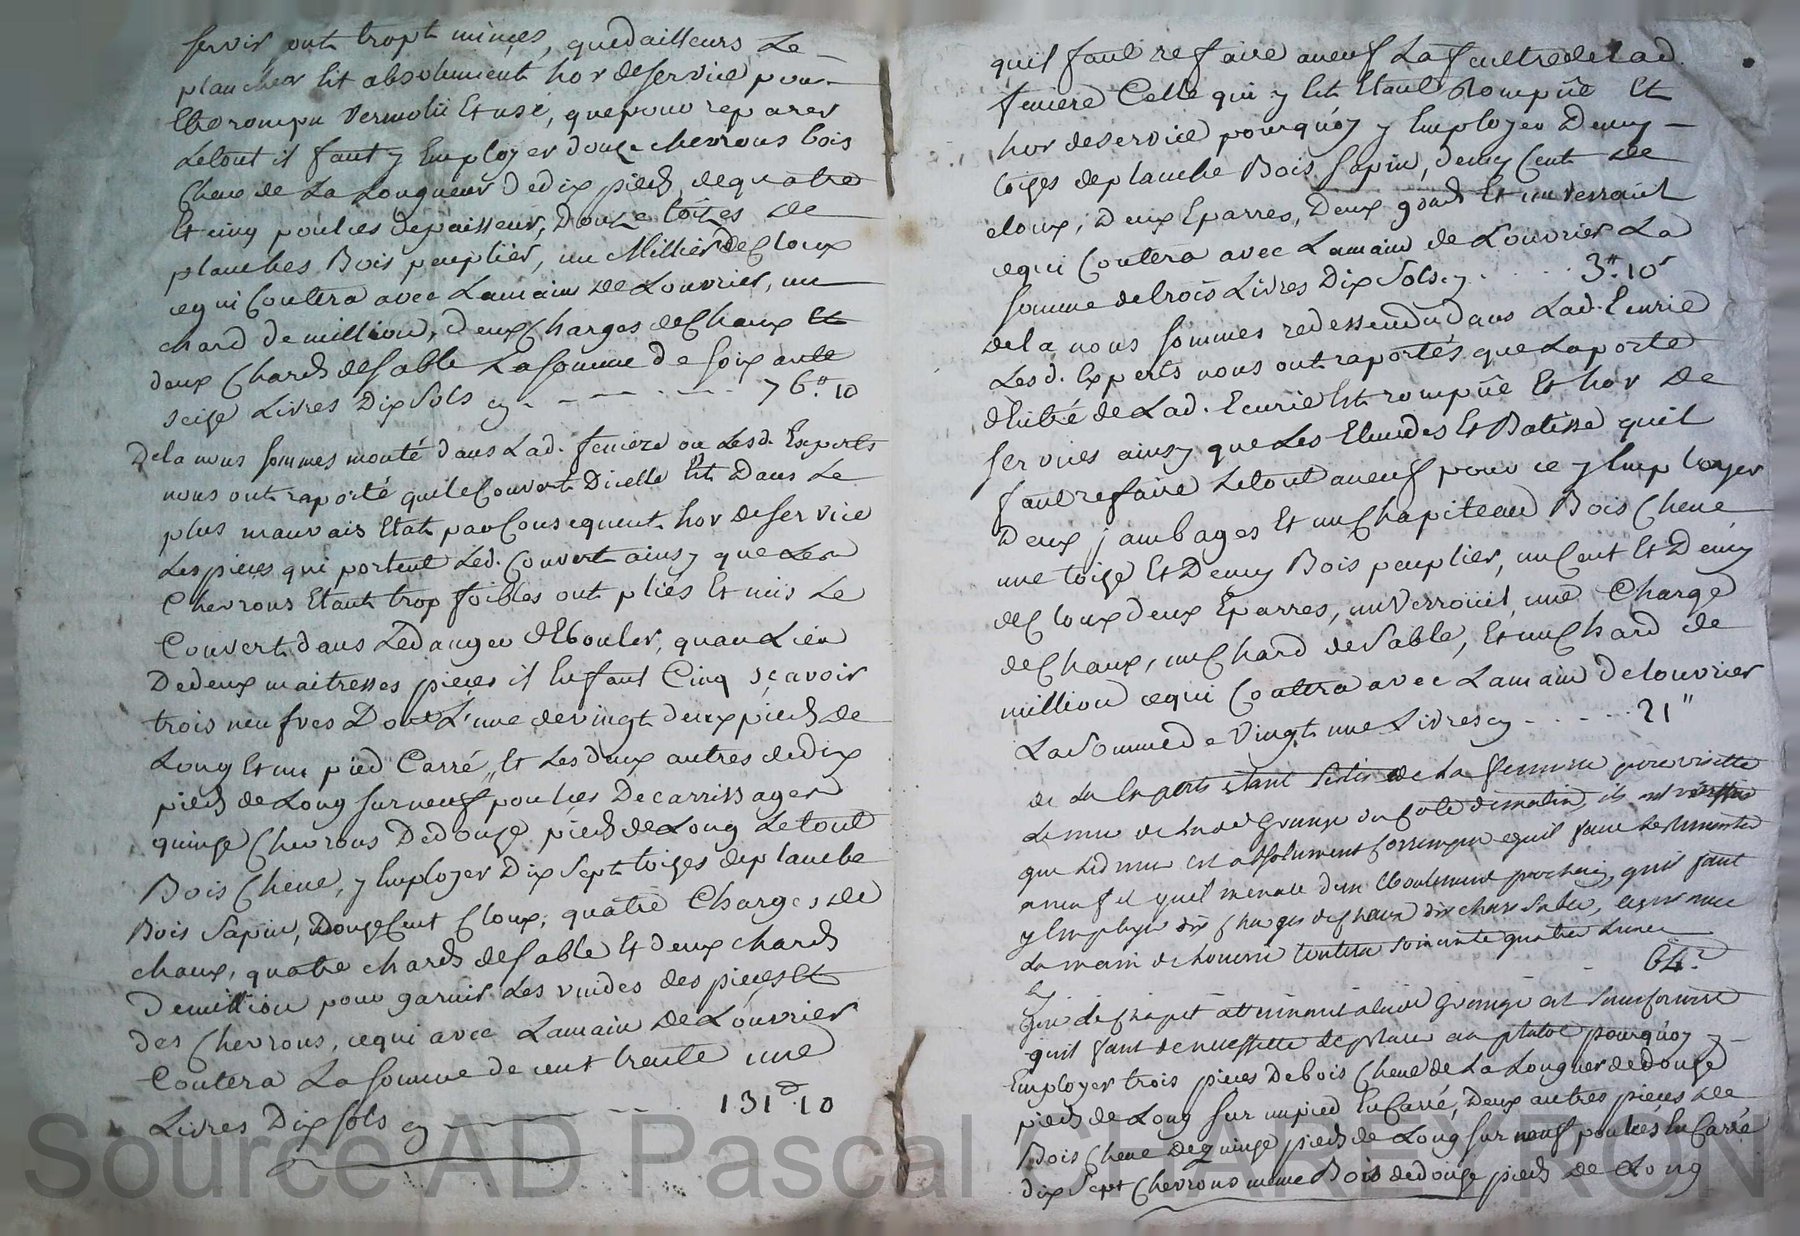 servir ont tropt minçes, quedailleurs Le
plancher Est absolument hor deservice pour
Etre rompu vermolü Et usé, quepour reparer
Letout il faut y Employer douze chevrons bois
Chene de La Longueur dedix pieds, dequatre
Et cinq poulces depaisseur, Douze toizes de
planches Bois peuplier, un Millier de Cloux
cequi Coutera avec Lamain de Louvrier, un
chard demillion, deux Charges de Chaux Et
deux Chards desable La somme de soixante
seize Livres Dix sols cy - - - - - 76" 10
Dela nous sommes monté dans Lad. feniere ou Lesd. Experts
nous ont raporté queleCouvert Dicelle Est Dans Le
plus mauvais Etat par Consequent hor deservice
Les pieces qui portent Led. Couvert ainsy que Les
Chevrons Etant trop foibles ont pliés Et mis Le
Couvert dans Ledanger dEbouler, quau Lieu
Dedeux maitresses pieces il En faut Cinq sçavoir
trois neufves Dont L'une devingt deux pieds de
Long Et un pied Carré, Et Les deux autres dedix
pieds de Long sur neuf poulces Decarrissager
quinze Chevrons Dedouze pieds de Long Letout
Bois Chene, y Employer Dix sept toizes deplanche
Bois sapin, Douze Cent Cloux, quatre Charges de
chaux, quatre chards desable Et deux chards
Demillion pour garnir Les vuides des pieces Et
des Chevrons, cequi avec Lamain de Louvrier
Coutera La somme de cent trente une
Livres Dix sols cy - - - 131" 10
quil faut refaire aneuf La fenltre de Lad.
feniere Celle qui y Est Etant Rompüe Et
hor deservice pourquoy y Employer Demy
toizes deplanche Bois sapin, demy Cent de
cloux, Deux Eparres, Deux gonds Et un verrouil
cequi Coutera avec Lamain de Louvrier La
somme detrois Livres Dix sols cy . . . . . 3" 10s
dela nous sommes redessendu dans Lad. Ecurie
Lesd. Experts nous ont raportés que Laporte
dEntré de Lad. Ecurie Est rompüe Et hor de
services ainsy que Les Etendes Et Batisse quil
faut refaire Letout aneuf pour ce y Employer
Deux jambages Et un Chapiteau Bois Chene
une toize Et Demy Bois peuplier, un Cent Et Demy
de Cloux deux Eparres, un verrouil, une Charge
de Chaux, un Chard de sable, Et un Chard de
million cequi Coutera avec Lamain delouvrier
La somme de vingt une Livres cy - - - - - 21"
de La Experts Etant sortis de La feniere pour visitte
Le mur de Lade Grange du Coté dematin, ils ont
que Led mur est absolument Corrompu equil faut
aneuf et quil menace dun Eboulement prochain, quil faut
y Employer dix Charges de Chaux dix chars sable,
La main de Louvrier Coutera soixante quatre Livres
cy - 64"
quil faut de necessitte pourquoy y
Employer trois pieces Debois Chene de La Longueur dedouze
pieds de Long sur un pied En Carré, Deux autres pieces de
Bois Chene Dequinze pieds de Long sur neuf poulces En Carré
dix sept Chevrons meme Bois dedouze pieds de Long
Source AD Pascal CHAREYRON